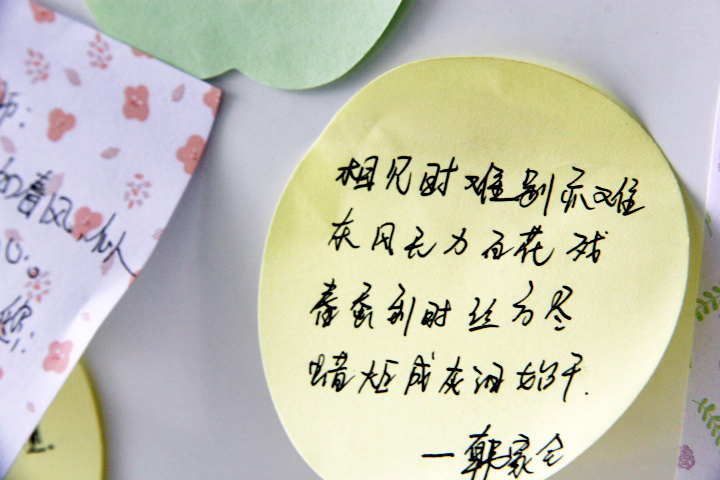 师:
的春风,似
相见时难别亦难
东风无力百花残
春蚕到时丝方尽
蜡炬成灰泪始干.
—韩家全